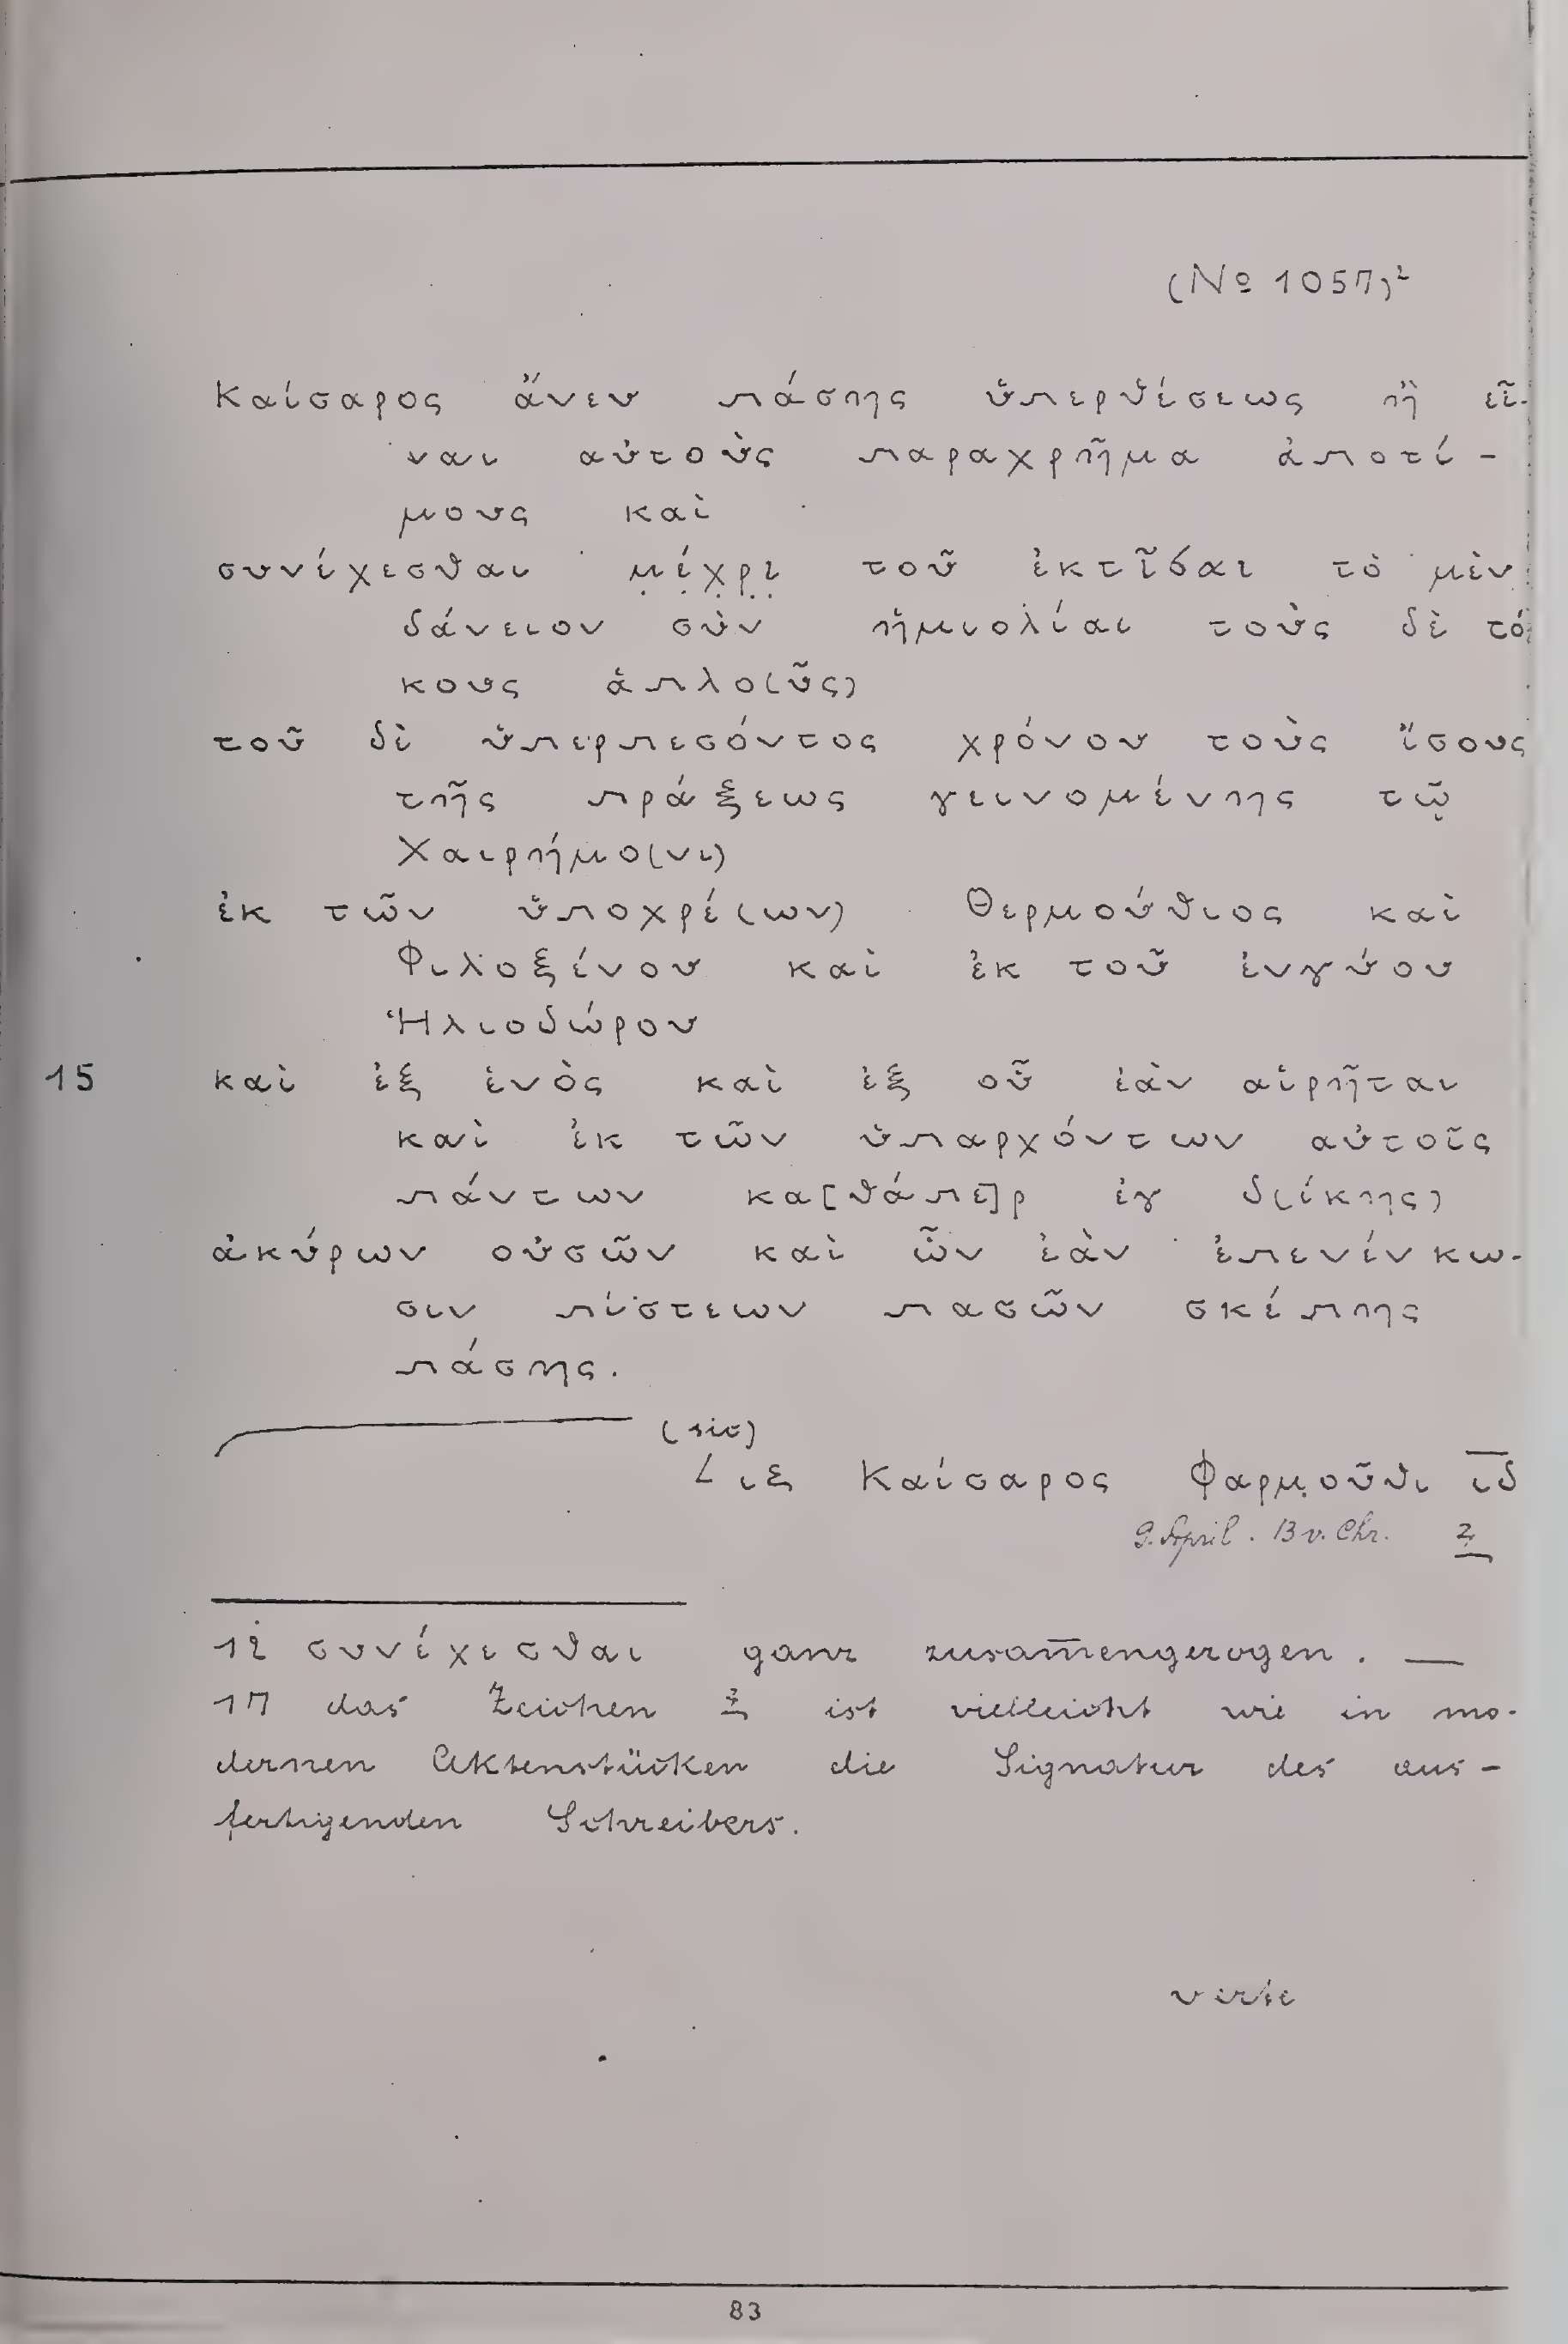 (No 1057)²
Καίσαρος ἄνευ πάσης ὑπερθέσεως ἢ εἶ-
ναι αὐτοὺς παραχρῆμα ἀποτί-
μους καὶ
συνέχεσθαι μ̣έ̣χ̣ρ̣ι̣ τοῦ ἐκτῖσαι τὸ μὲν
δάνειον σὺν ἡμιολίαι τοὺς δὲ τό
κους ἁπλο(ῦς)
τοῦ δὲ ὑπερπεσόντος χρόνου τοὺς ἴσους
τῆς πράξεως γεινομένης τῷ
Χαιρήμο(νι)
ἐκ τῶν ὑποχρέ(ων) Θερμούθιος καὶ
Φιλοξένου καὶ ἐκ τοῦ ἐνγύου
Ἡλιοδώρου
15 καὶ ἐξ ἑνὸς καὶ ἐξ οὗ ἐὰν αἱρῆται
καὶ ἐκ τῶν ὑπαρχόντων αὐτοῖς
πάντων κα[θάπε]ρ ἐγ δ(ίκης)
ἀκύρων οὐσῶν καὶ ὧν ἐὰν ἐπενένκω-
σιν πίστεων πασῶν σκέπης
πάσης.
(sic)
L ιξ Καίσαρος Φαρμ̣οῦθι ι̅δ̅
9. April. 13 v. Chr.
12 συνέχεσθαι ganz zusam̅engezogen. —
17 das Zeichen ist vielleicht wie in mo-
dernen Aktenstücken die Signatur des aus-
fertigenden Schreibers.
verte
83